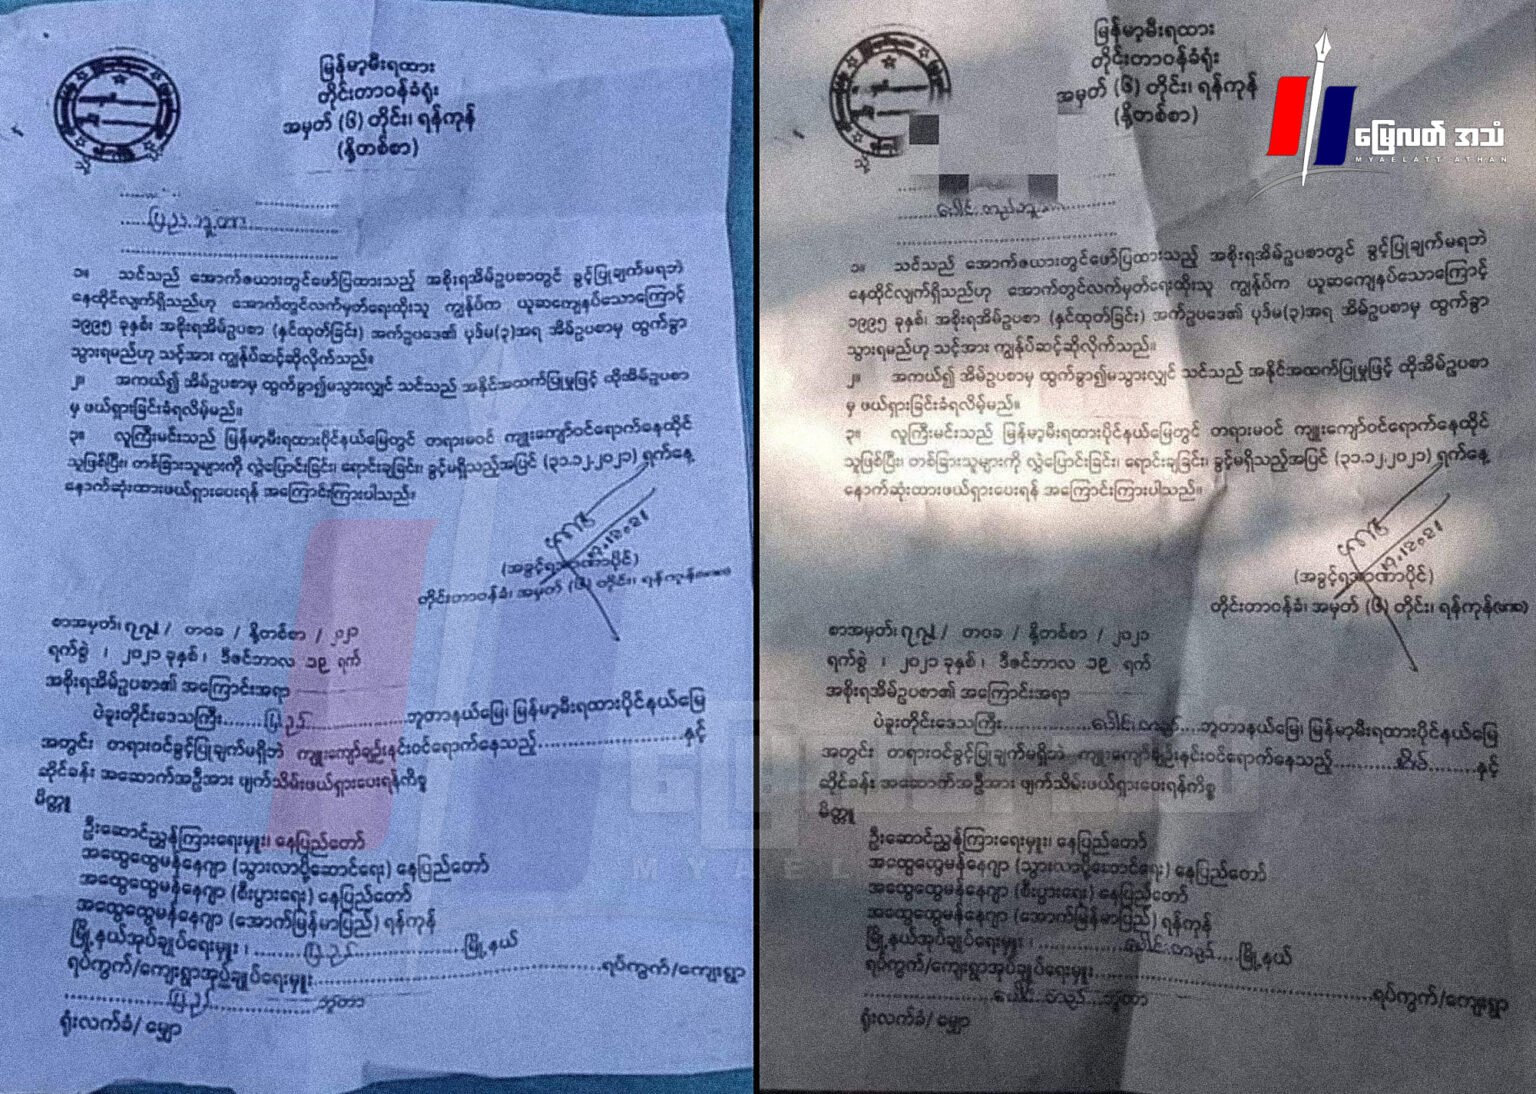 မြန်မာ့မီးရထား
တိုင်းတာဝန်ခံရုံး
အမှတ် (၆) တိုင်း၊ ရန်ကုန်
(နို့တစ်စာ)
သို့
ပြည်
၁။ သင်သည် အောက်ဇယားတွင်ဖော်ပြထားသည့် အစိုးရအိမ်ဥပစာတွင် ခွင့်ပြုချက်မရဘဲ
နေထိုင်လျက်ရှိသည်ဟု အောက်တွင်လက်မှတ်ရေးထိုးသူ ကျွန်ုပ်က ယူဆကျေနပ်သောကြောင့်
၁၉၅၅ ခုနှစ်၊ အစိုးရအိမ်ဥပစာ (နှင်ထုတ်ခြင်း) အက်ဥပဒေ၏ ပုဒ်မ(၃)အရ အိမ်ဥပစာမှ ထွက်ခွာ
သွားရမည်ဟု သင့်အား ကျွန်ုပ်ဆင့်ဆိုလိုက်သည်။
၂။ အကယ်၍ အိမ်ဥပစာမှ ထွက်ခွာ၍မသွားလျှင် သင်သည် အနိုင်အထက်ပြုမှုဖြင့် ထိုအိမ်ဥပစာ
မှ ဖယ်ရှားခြင်းခံရလိမ့်မည်။
၃။ လူကြီးမင်းသည် မြန်မာ့မီးရထားပိုင်နယ်မြေတွင် တရားမဝင် ကျူးကျော်ဝင်ရောက်နေထိုင်
သူဖြစ်ပြီး၊ တစ်ခြားသူများကို လွှဲပြောင်းခြင်း၊ ရောင်းချခြင်း၊ ခွင့်မရှိသည့်အပြင် (၃၁.၁၂.၂၀၂၁) ရက်နေ့
နောက်ဆုံးထားဖယ်ရှားပေးရန် အကြောင်းကြားပါသည်။
(အခွင့်ရအာဏာပိုင်)
တိုင်းတာဝန်ခံ၊ အမှတ် (၆) တိုင်း၊ ရန်ကုန်
စာအမှတ်၊ / တ၀ခ / နို့တစ်စာ / ၂၀၂၁
ရက်စွဲ ၊ ၂၀၂၁ ခုနှစ် ၊ ဒီဇင်ဘာလ ၁၉ ရက်
အစိုးရအိမ်ဥပစာ၏ အကြောင်းအရာ
ပဲခူးတိုင်းဒေသကြီး........ပြည်................ဘူတာနယ်မြေ၊ မြန်မာ့မီးရထားပိုင်နယ်မြေ
အတွင်း တရားဝင်ခွင့်ပြုချက်မရှိဘဲ ကျူးကျော်ချဉ်းနင်းဝင်ရောက်နေသည့်........................နှင့်
ဆိုင်ခန်း အဆောက်အဦအား ဖျက်သိမ်းဖယ်ရှားပေးရန်ကိစ္စ
မိတ္တူ
ဦးဆောင်ညွှန်ကြားရေးမှူး၊ နေပြည်တော်
အထွေထွေမန်နေဂျာ (သွားလာပို့ဆောင်ရေး) နေပြည်တော်
အထွေထွေမန်နေဂျာ (စီးပွားရေး) နေပြည်တော်
အထွေထွေမန်နေဂျာ (အောက်မြန်မာပြည်) ရန်ကုန်
မြို့နယ်အုပ်ချုပ်ရေးမှူး ၊ ........ပြည်................မြို့နယ်
ရပ်ကွက်/ကျေးရွာအုပ်ချုပ်ရေးမှူး................................ရပ်ကွက်/ကျေးရွာ
................ပြည်................ဘူတာ
ရုံးလက်ခံ/ မျှော
မြန်မာ့မီးရထား
တိုင်းတာဝန်ခံရုံး
အမှတ် (၆) တိုင်း၊ ရန်ကုန်
(နို့တစ်စာ)
မြေလတ် အသံ
MYAELATT ATHAN
သို့
၁။ သင်သည် အောက်ဇယားတွင်ဖော်ပြထားသည့် အစိုးရအိမ်ဥပစာတွင် ခွင့်ပြုချက်မရဘဲ
နေထိုင်လျက်ရှိသည်ဟု အောက်တွင်လက်မှတ်ရေးထိုးသူ ကျွန်ုပ်က ယူဆကျေနပ်သောကြောင့်
၁၉၅၅ ခုနှစ်၊ အစိုးရအိမ်ဥပစာ (နှင်ထုတ်ခြင်း) အက်ဥပဒေ၏ ပုဒ်မ(၃)အရ အိမ်ဥပစာမှ ထွက်ခွာ
သွားရမည်ဟု သင့်အား ကျွန်ုပ်ဆင့်ဆိုလိုက်သည်။
၂။ အကယ်၍ အိမ်ဥပစာမှ ထွက်ခွာ၍မသွားလျှင် သင်သည် အနိုင်အထက်ပြုမှုဖြင့် ထိုအိမ်ဥပစာ
မှ ဖယ်ရှားခြင်းခံရလိမ့်မည်။
၃။ လူကြီးမင်းသည် မြန်မာ့မီးရထားပိုင်နယ်မြေတွင် တရားမဝင် ကျူးကျော်ဝင်ရောက်နေထိုင်
သူဖြစ်ပြီး၊ တစ်ခြားသူများကို လွှဲပြောင်းခြင်း၊ ရောင်းချခြင်း၊ ခွင့်မရှိသည့်အပြင် (၃၁.၁၂.၂၀၂၁) ရက်နေ့
နောက်ဆုံးထားဖယ်ရှားပေးရန် အကြောင်းကြားပါသည်။
(အခွင့်ရအာဏာပိုင်)
တိုင်းတာဝန်ခံ၊ အမှတ် (၆) တိုင်း၊ ရန်ကုန်
စာအမှတ်၊ / တ၀ခ / နို့တစ်စာ / ၂၀၂၁
ရက်စွဲ ၊ ၂၀၂၁ ခုနှစ် ၊ ဒီဇင်ဘာလ ၁၉ ရက်
အစိုးရအိမ်ဥပစာ၏ အကြောင်းအရာ
ပဲခူးတိုင်းဒေသကြီး................ဘူတာနယ်မြေ၊ မြန်မာ့မီးရထားပိုင်နယ်မြေ
အတွင်း တရားဝင်ခွင့်ပြုချက်မရှိဘဲ ကျူးကျော်ချဉ်းနင်းဝင်ရောက်နေသည့်................နှင့်
ဆိုင်ခန်း အဆောက်အဦအား ဖျက်သိမ်းဖယ်ရှားပေးရန်ကိစ္စ
မိတ္တူ
ဦးဆောင်ညွှန်ကြားရေးမှူး၊ နေပြည်တော်
အထွေထွေမန်နေဂျာ (သွားလာပို့ဆောင်ရေး) နေပြည်တော်
အထွေထွေမန်နေဂျာ (စီးပွားရေး) နေပြည်တော်
အထွေထွေမန်နေဂျာ (အောက်မြန်မာပြည်) ရန်ကုန်
မြို့နယ်အုပ်ချုပ်ရေးမှူး ၊ ................မြို့နယ်
ရပ်ကွက်/ကျေးရွာအုပ်ချုပ်ရေးမှူး................................ရပ်ကွက်/ကျေးရွာ
................ဘူတာ
ရုံးလက်ခံ/ မျှော